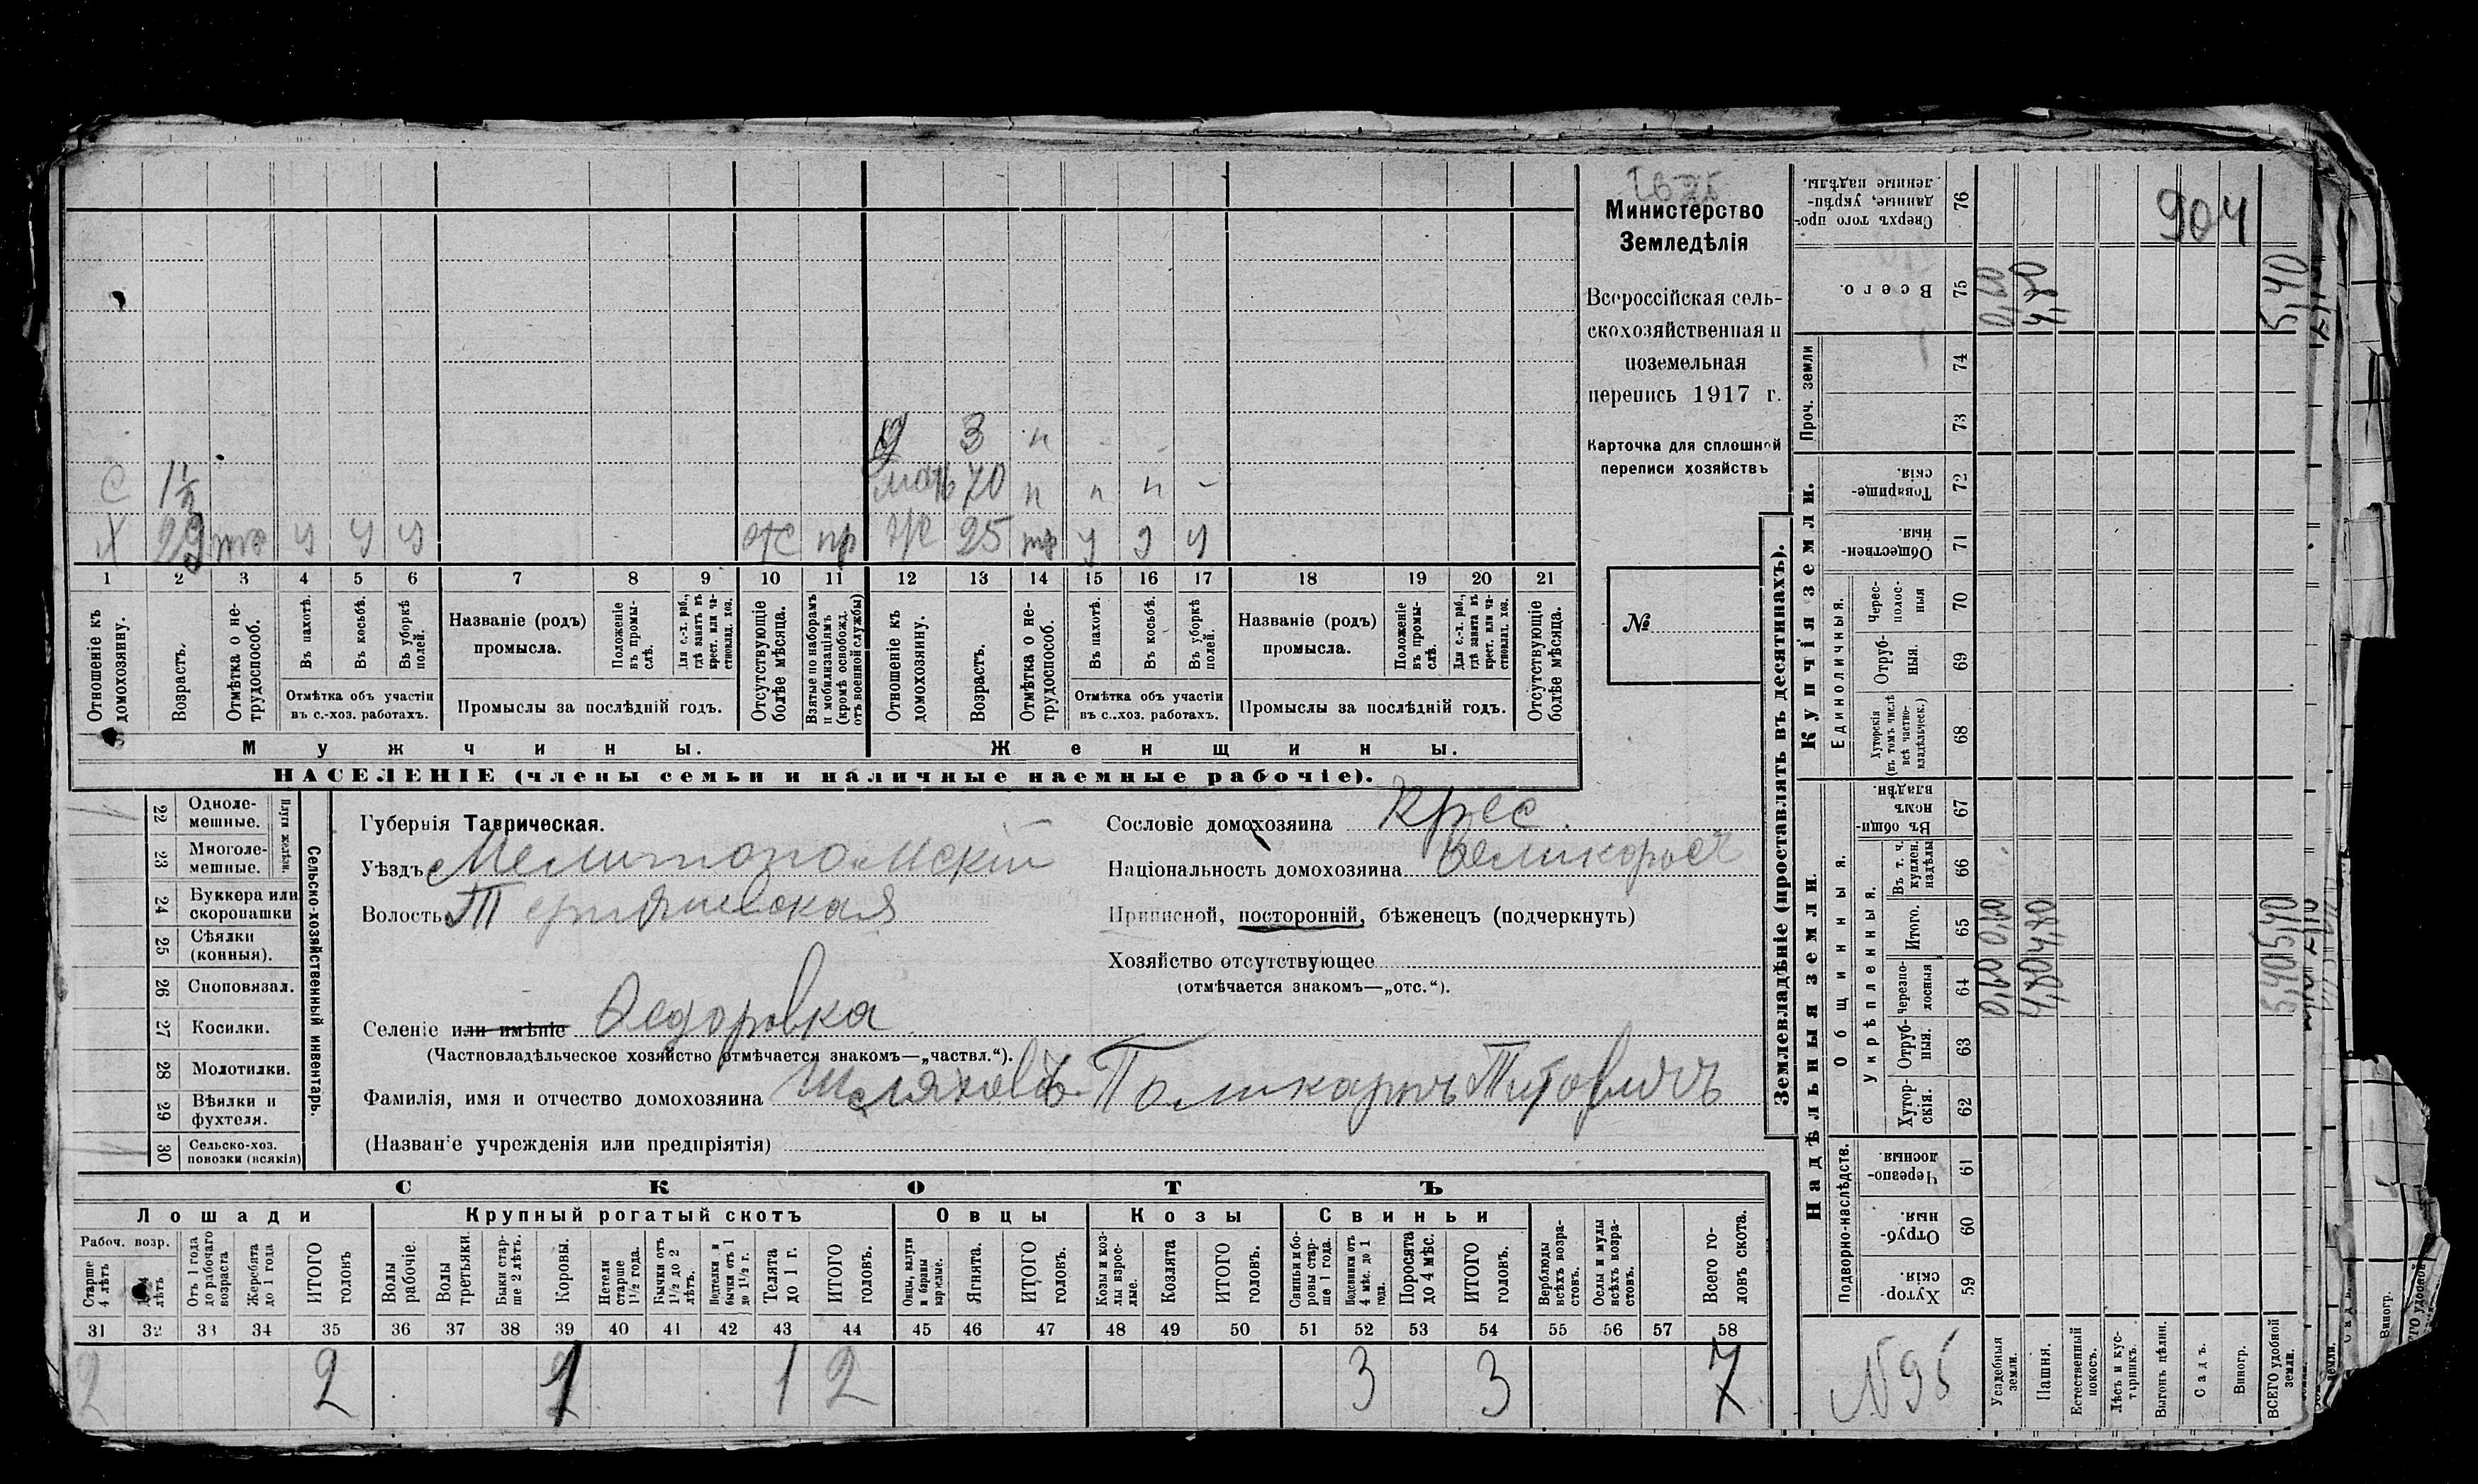 904
Министерство
Земледѣлія
Всероссійская сель-
скохозяйственная и
поземельная
перепись 1917 г.
Карточка для сплошной
переписи хозяйствъ
№
д 3 п
С 1½ мать 70 п п п -
Х 29 тр у у у ж пр ж 25 тр у у у
1 2 3 4 5 6 7 8 9 10 11 12 13 14 15 16 17 18 19 20 21
Отношеніе къ домохозяину.
Возрастъ.
Отмѣтка о не-трудоспособ.
Въ пахотѣ.
Въ косьбѣ.
Въ уборкѣ полей.
Отмѣтка объ участіи
въ с.-хоз. работахъ.
Названіе (родъ)
промысла.
Положеніе въ промы-слѣ.
Для с.-х. раб., гдѣ занятъ въ крест. или ча-стновлад. хоз.
Промыслы за послѣдній годъ.
Отсутствующіе болѣе мѣсяца.
Взятые по наборамъ и мобилизаціямъ (кромѣ освобожд. отъ военной службы)
Отношеніе къ домохозяину.
Возрастъ.
Отмѣтка о не-трудоспособ.
Въ пахотѣ.
Въ косьбѣ.
Въ уборкѣ полей.
Отмѣтка объ участіи
въ с.-хоз. работахъ.
Названіе (родъ)
промысла.
Положеніе въ промы-слѣ.
Для с.-х. раб., гдѣ занята въ крест. или ча-стновлад. хоз.
Промыслы за послѣдній годъ.
Отсутствующіе болѣе мѣсяца.
Мужчины. Женщины.
НАСЕЛЕНІЕ (члены семьи и наличные наемные рабочіе).
Сельско-хозяйственный инвентарь.
Плуги желѣзн.
22 Одноле-мешные.
23 Многоле-мешные.
24 Буккера или скоропашки
25 Сѣялки (конныя).
26 Сноповязал.
27 Косилки.
28 Молотилки.
29 Вѣялки и фухтеля.
30 Сельско-хоз. повозки (всякія)
Губернія Таврическая.
Уѣздъ Мелитопольскій
Волость
Селеніе или имѣніе Федоровка
(Частновладѣльческое хозяйство отмѣчается знакомъ—„частвл.“).
Сословіе домохозяина крес.
Національность домохозяина великоросъ
Приписной, посторонній, бѣженецъ (подчеркнуть)
Хозяйство отсутствующее
(отмѣчается знакомъ—„отс.“).
Фамилія, имя и отчество домохозяина Шляховъ Поликарпъ Титовичъ
(Названіе учрежденія или предпріятія)
СКОТЪ
Лошади Крупный рогатый скотъ Овцы Козы Свиньи
Рабоч. возр.
Старше 4 лѣтъ
До 4 лѣтъ
Отъ 1 года до рабочаго возраста
Жеребята до 1 года
ИТОГО головъ
Волы рабочіе.
Волы третьяки.
Быки стар-ше 2 лѣтъ.
Коровы.
Нетели старше 1½ года.
Бычки отъ 1½ до 2 лѣтъ.
Подтелки и бычки отъ 1 до 1½ г.
Телята до 1 г.
ИТОГО головъ.
Овцы, валухи и бараны взрослые.
Ягнята.
ИТОГО головъ.
Козы и коз-лы взрос-лые.
Козлята
ИТОГО головъ.
Свиньи и бо-ровы стар-ше 1 года.
Подсвинки отъ 4 мѣс. до 1 года.
Поросята до 4 мѣс.
ИТОГО головъ.
Верблюды всѣхъ возра-стовъ.
Ослы и мулы всѣхъ возра-стовъ.
Всего го-ловъ скота.
31 32 33 34 35 36 37 38 39 40 41 42 43 44 45 46 47 48 49 50 51 52 53 54 55 56 57 58
2 2 1 1 2 3 3 7
Землевладѣніе (проставлять въ десятинахъ).
Купчія земли.
Надѣльныя земли.
Сверхъ того про-данные, укрѣп-ленные надѣлы. 76
Всего. 75
Проч. земли 74 73
Товарище-скія. 72
Обществен-ныя. 71
Единоличныя.
Черес-полос-ныя 70
Отруб-ныя. 69
Хуторскія (въ томъ числѣ всѣ частно-владѣльческ.) 68
Въ общин-номъ владѣн. 67
Общинныя.
Укрѣпленныя.
Въ т. ч. куплен. надѣлы 66
Итого. 65
черезпо-лосныя 64
Отруб-ныя. 63
Хутор-скія. 62
Подворно-наслѣдств.
Черезпо-лосныя 61
Отруб-ныя. 60
Хутор-скія. 59
Усадебныя земли. 0,60 0,60 0,60
Пашня. 4,80 4,80 4,80
Естественный покосъ.
Лѣсъ и кус-тарникъ.
Выгонъ цѣлин.
Садъ.
Виногр.
ВСЕГО удобной земли. 5,40 5,40 5,40
N 95
Виногр.